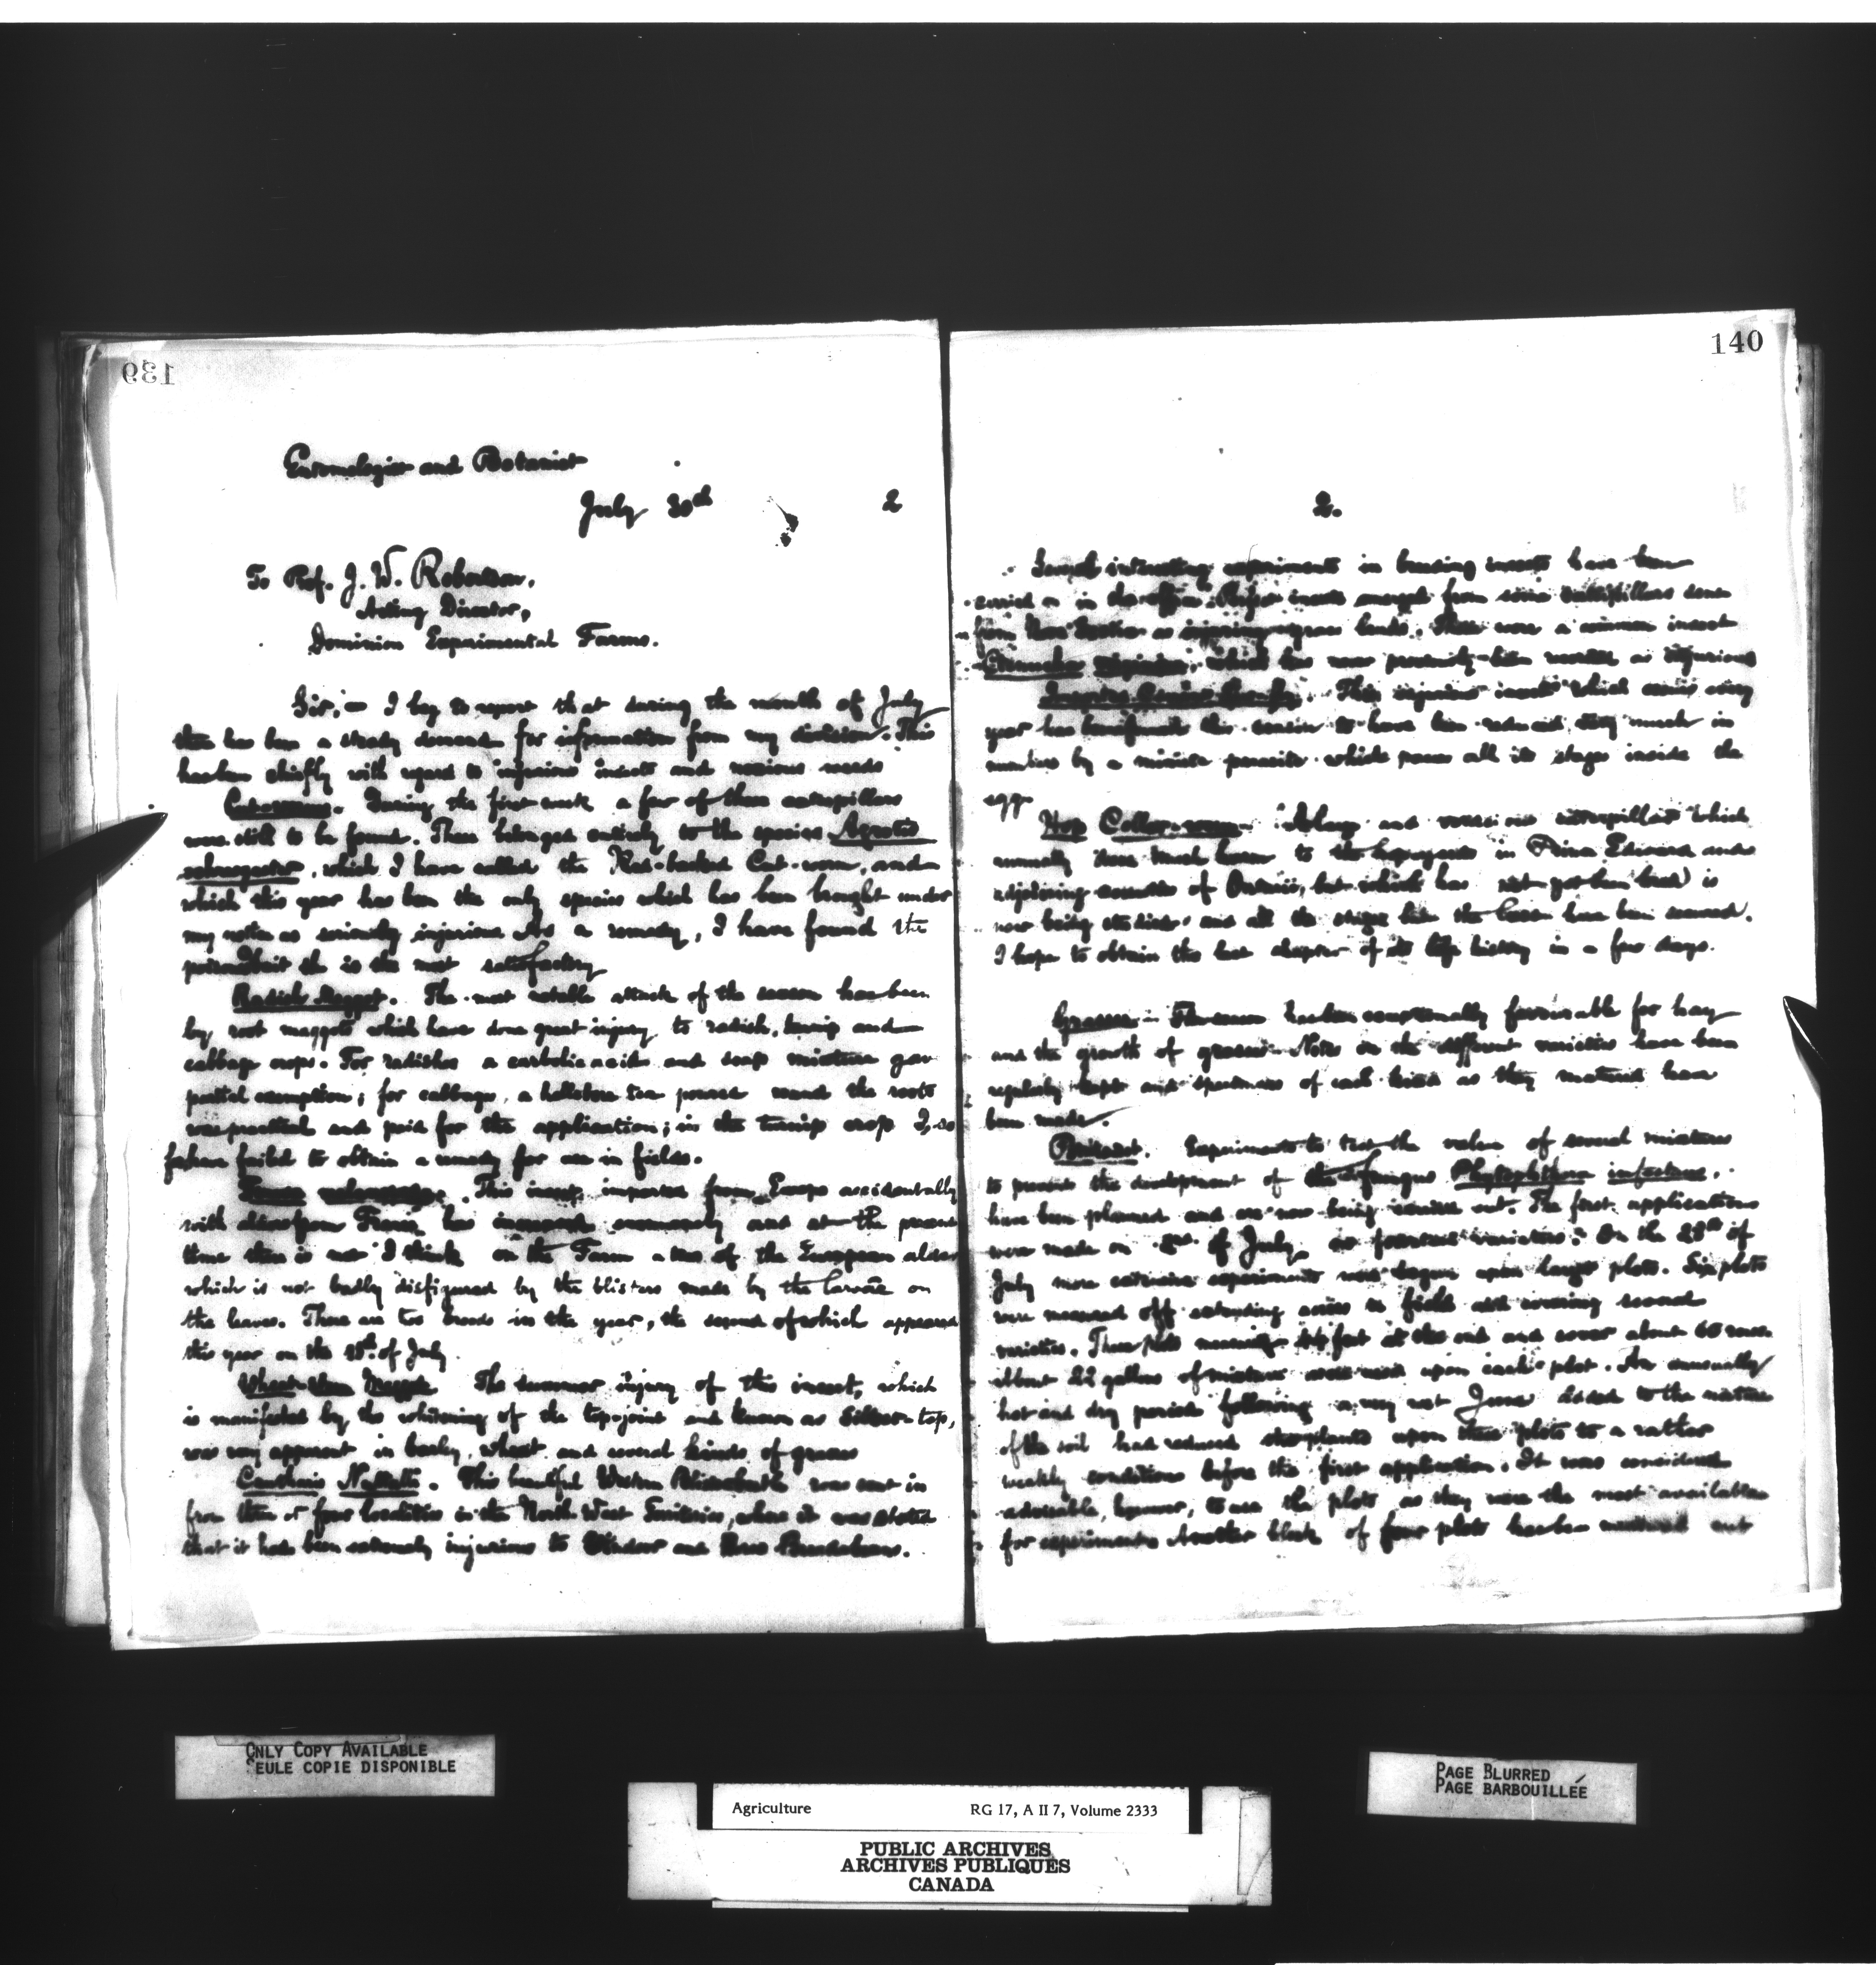 139
Entomologist and Botanist
July 30th 2
To Prof. J. W. Robertson,
Acting Director,
Dominion Experimental Farms.
Sir;— I beg to report that during the month of July
there has been a steady demand for information from my division. This
has been chiefly with regard to injurious insects and noxious weeds
Cutworms. During the first week a few of these caterpillars
were still to be found. These belonged entirely to the species Agrotis
ochrogaster, which I have called the Red-backed Cut-worm, and
which this year has been the only species which has been brought under
my notice as seriously injurious. As a remedy, I have found the
is the most satisfactory
Radish Maggot. The most notable attack of the season has been
by root maggots which have done great injury to radish, turnip and
cabbage crops. For radishes a carbolic acid and soap mixture gave
partial exemption; for cabbages, a hellebore tea poured round the roots
was practical and paid for the application; in the turnip crop I, so
far have failed to obtain a remedy for use in fields.
This insect imported from Europe accidentally
with alders from France has increased enormously and at the present
time there is not I think on the Farm a tree of the European alder
which is not badly disfigured by the blisters made by the larvae on
the leaves. There are two broods in the year, the second of which appeared
this year on the 28th of July.
Wheat-stem Maggot The summer injury of this insect, which
is manifested by the whitening of the top-joint and known as Silver-top,
was very apparent in barley, wheat and several kinds of grasses
Cantharis Nuttalli. This beautiful Western Blister-beetle was sent in
from three or four localities in the North West Territories, where it was stated
that it has been extremely injurious to Windsor and Broad Beans.
140
2.
Several interesting experiments in breeding insects have been
carried on in the office. Perfect insects emerged from some caterpillars sent
from as injuring grass lands. These were a common insect
which has never previously been recorded as injurious
. This injurious insect which occurs every
year has this season to have been reduced very much in
numbers by a minute parasite which passes all its stages inside the
egg.
Hop Collar-worm. A large and voracious caterpillar which
annually does much harm to the hop-yards in Prince Edward and
adjoining counties of Ontario, but which has not yet been bred is
now being studied and all the stages but the last have been secured.
I hope to obtain the last chapter of its life history in a few days.
Grasses. The season has been exceptionally favourable for hay
and the growth of grasses. Notes on the different varieties have been
regularly kept and specimens of each kind as they matured have
been made.
Experiments to test the value of several mixtures
to prevent the development of the fungus Phytophthora infestans,
have been planned and are now being carried out. The first applications
were made on of July to varieties. On the 28th of
July more extensive experiments were begun upon larger plots. Six plots
were measured off extending across the field and covering several
varieties. These plots measure feet at the end and cover about 60 rows
about 22 gallons of mixture were used upon each plot. An unusually
hot and dry period following a very wet June added to the nature
of the soil had reduced the plants upon these plots to a rather
weakly condition before the first application. It was considered
advisable, however, to use the plots, as they were the most available
for experiment. Another block of four plots has been measured out
ONLY COPY AVAILABLE
SEULE COPIE DISPONIBLE
PAGE BLURRED
PAGE BARBOUILLÉE
Agriculture RG 17, A II 7, Volume 2333
PUBLIC ARCHIVES
ARCHIVES PUBLIQUES
CANADA